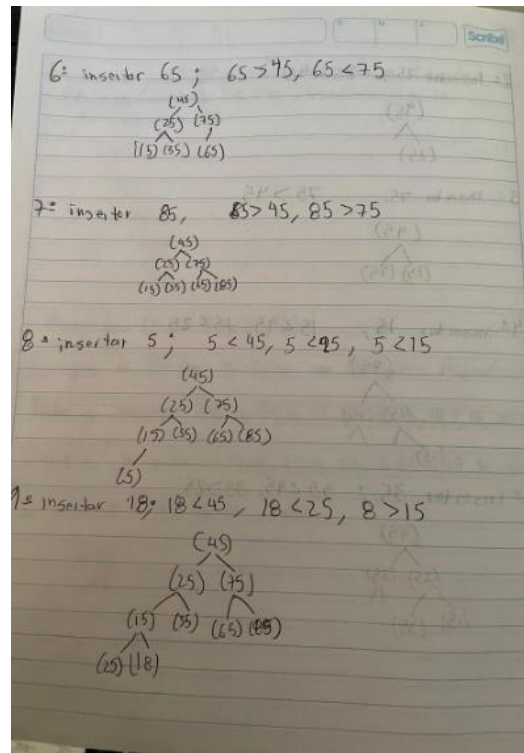 Scribe
6º insertar 65 ; 65 > 45, 65 < 75
(45)
(25) (75)
(15) (35) (65)
7º insertar 85, 85 > 45, 85 > 75
(45)
(25) (75)
(15) (35) (65) (85)
8º insertar 5 ; 5 < 45, 5 < 25, 5 < 15
(45)
(25) (75)
(15) (35) (65) (85)
(5)
9º insertar 18; 18 < 45, 18 < 25, 8 > 15
(45)
(25) (75)
(15) (35) (65) (85)
(25) (18)